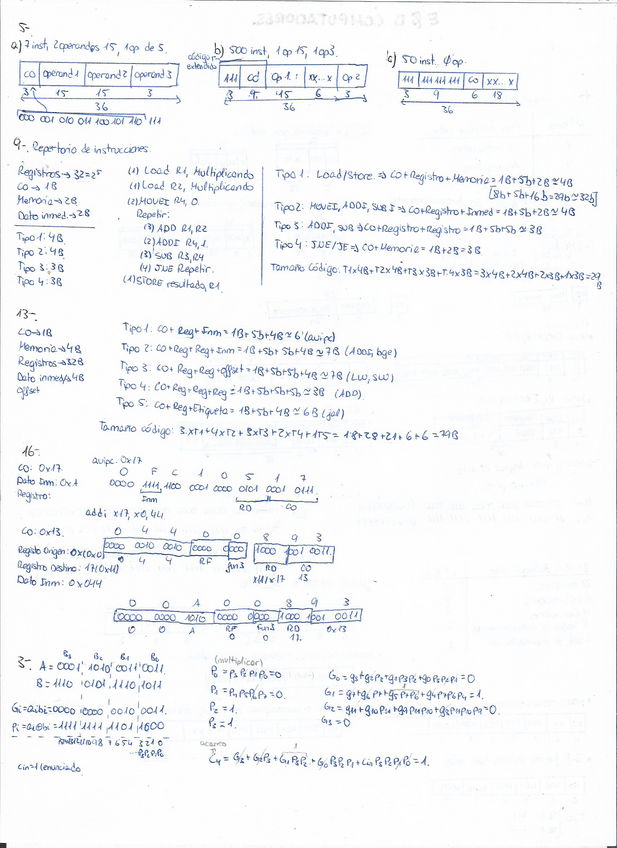 5-
a) 7 inst, 2 operandos 15, 1 op de 3.
CO operand1 operand2 operand3
3 15 15 3
36
000 001 010 011 100 101 110 111
b) 500 inst, 1 op 15, 1 op 3.
código extendido
111 CO Op 1 xx...x Op 2
3 9 15 6 3
36
c) 50 inst. φ op.
111 111 111 111 CO xx...x
3 9 6 18
36
9-. Repertorio de instrucciones.
Registros → 32=2⁵
CO → 1B
Memoria → 2B
Dato inmed. → 2B
Tipo 1: 4B.
Tipo 2: 4B.
Tipo 3: 3B
Tipo 4: 3B
(1) Load R1, Multiplicando
(1) Load R2, Multiplicando
(2) MOVEI R4, 0.
Repetir:
(3) ADD R1, R2
(2) ADDI R4, 1.
(3) SUB R3, R4
(4) JNE Repetir.
(1) STORE resultado, R1.
Tipo 1: Load/Store. ⇒ CO+Registro+Memoria = 1B+5b+2B ≃ 4B
[8b+5b+16b=29b ≃ 32b]
Tipo 2: MOVEI, ADDI, SUBI ⇒ CO+Registro+Inmed = 1B+5b+2B ≃ 4B
Tipo 3: ADD, SUB ⇒ CO+Registro+Registro = 1B+5b+5b ≃ 3B
Tipo 4: JNE/JE ⇒ CO+Memoria = 1B+2B = 3B
Tamaño código: T1x4B+T2x4B+T3x3B+T4x3B = 3x4B+2x4B+2x3B+1x3B = 29B
13-.
CO → 1B
Memoria → 4B
Registros → 32B
Dato inmed → 4B
offset
Tipo 1: CO+Reg+Inm = 1B+5b+4B ≃ 6 (auipc)
Tipo 2: CO+Reg+Reg+Inm = 1B+5b+5b+4B ≃ 7B (ADDI, bge)
Tipo 3: CO+Reg+Reg+offset = 1B+5b+5b+4B ≃ 7B (LW, SW)
Tipo 4: CO+Reg+Reg+Reg = 1B+5b+5b+5b ≃ 3B (ADD).
Tipo 5: CO+Reg+Etiqueta = 1B+5b+4B ≃ 6B (jal)
Tamaño código: 3xT1+4xT2+3xT3+2xT4+1T5 = 18+28+21+6+6 = 79B
16-.
CO: 0x17
Dato Inm: 0x1
Registro:
auipc 0x17
0 F C 1 0 5 1 7
0000 1111 1100 0001 0000 0101 0001 0111
Inm RD CO
addi x17, x0, 44
CO: 0x13.
Registro Origen: 0x(0x0)
Registro Destino: 17(0x11)
Dato Inm: 0x044
0 4 4 0 0 8 9 3
0000 0100 0100 0000 0000 1000 1001 0011
0 4 4 RF fun3 RD CO
x11/x17 13
0 0 A 0 0 8 9 3
0000 0000 1010 0000 0000 1000 1001 0011
0 0 A RF Fun3 RD 0x13
0 0 17.
3-.
B₃ B₂ B₁ B₀
A = 0001 1010 0011 0011
B = 1110 0101 1110 1011
Gi=aibi=0000 0000 0010 0011
Pi=ai⊕bi=1111 1111 1101 1000
P₃P₂P₁P₀
cin=1 (enunciado)
(multiplicar)
P₀ = P₃P₂P₁P₀ = 0
P₁ = P₇P₆P₅P₄ = 0.
P₂ = 1.
P₃ = 1.
G₀ = g₃+g₂P₃+g₁P₃P₂+g₀P₃P₂P₁ = 0
G₃ = 0
acarreo
C₄ = G₃+G₂P₃+G₁P₃P₂+G₀P₃P₂P₁+cinP₃P₂P₁P₀ = 1.